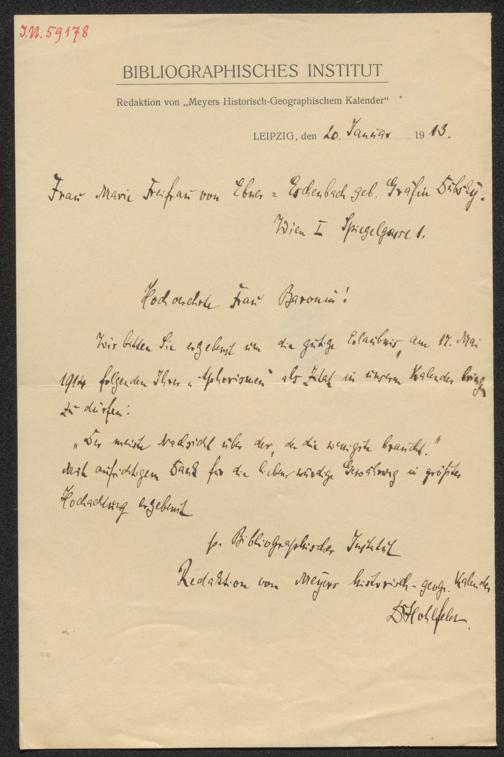 I.N. 59178
BIBLIOGRAPHISCHES INSTITUT
Redaktion von „Meyers Historisch-Geographischem Kalender“
LEIPZIG, den 20. Januar 1913.
Frau Marie Freifrau von Ebner = Eschenbach geb. Gräfin Dubsky.
Wien I Spiegelgasse 1.
Hochverehrte Frau Baronin!
Wir bitten Sie ergebenst um die gütige Erlaubnis, am 17. Mai
1914 folgenden Ihrer „Aphorismen“ als Zitat in unserm Kalender bringen
zu dürfen:
„Der meiste Nachsicht übe der, der die wenigste braucht.“
Mit aufrichtigem Dank für die liebenswürdige Gewährung in größter
Hochachtung ergebenst
pr. Bibliographisches Institut
Redaktion von Meyers historisch-geogr. Kalender
Dr Hohlfeld.